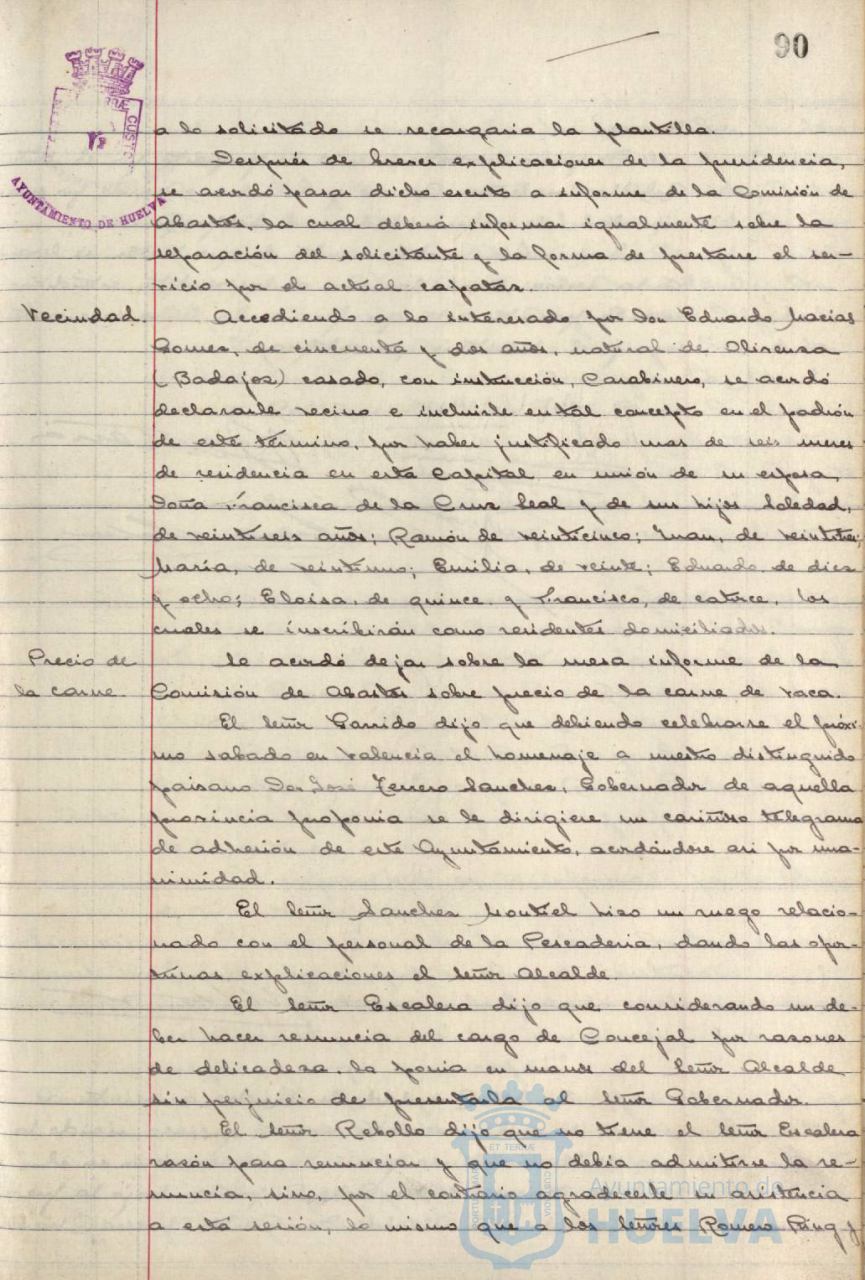 90
AYUNTAMIENTO DE HUELVA
a lo solicitado se recargaria la plantilla.
Después de breves explicaciones de la presidencia,
se acordó pasar dicho escrito a informe de la Comisión de
Abastos, la cual deberá informar igualmente sobre la
separación del solicitante y la forma de prestarse el ser-
vicio por el actual capataz.
Vecindad.
Accediendo a lo interesado por Don Eduardo Macias
Gomez, de cincuenta y dos años, natural de Olivenza
(Badajoz) casado, con instrucción, Carabinero, se acordó
declararle vecino e incluirle en tal concepto en el padrón
de este término, por haber justificado mas de seis meses
de residencia en esta Capital en unión de su esposa,
Doña Francisca de la Cruz Leal y de sus hijos Soledad,
de veintiseis años; Ramón de veinticinco; Juan, de veintitres;
María, de veintiuno; Emilia, de veinte; Eduardo, de diez
y ocho; Eloisa, de quince y Francisco, de catorce, los
cuales se inscribirán como residentes domiciliados.
Precio de
la carne
Se acordó dejar sobre la mesa informe de la
Comisión de Abastos sobre precio de la carne de vaca.
El Señor Garrido dijo que debiendo celebrarse el próxi-
mo sabado en Valencia el homenaje a nuestro distinguido
paisano Don José Terrero Sanchez, Gobernador de aquella
provincia proponia se le dirigiese un cariñoso telegrama
de adhesión de este Ayuntamiento, acordándose asi por una-
nimidad.
El Señor Sanchez Montiel hizo un ruego relacio-
nado con el personal de la Pescaderia, dando las opor-
tunas explicaciones el Señor Alcalde.
El Señor Escalera dijo que considerando un de-
ber hacer renuncia del cargo de Concejal por razones
de delicadeza, la ponia en manos del Señor Alcalde
sin perjuicio de presentarla al Señor Gobernador.
El Señor Rebollo dijo que no tiene el Señor Escalera
razón para renunciar y que no debia admitirse la re-
nuncia, sino, por el contrario agradecerle su asistencia
a esta sesión, lo mismo que a los Señores Romero Ring y
Ayuntamiento de
HUELVA